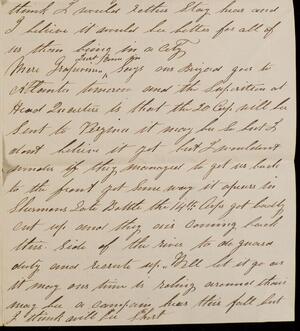 think I would rather stay hear and
I believe it would be better for all of
us then being in a City
More says our Brigad goes to
Atlanta tomorow and the suposition at
Head Quarters is that the 20 Cop. will be
Sent to Virginia it may be so but I
dont believe it yet but I wouldent
wonder if they managed to get us back
to the front yet some way it apears in
Shermans Late Battle the 14th Cops got badly
cut up and they are coming back
this side of the river to do guard
duty and recruit up. Well let it go as
it may our time is roling around thare
may be a campaign hear this fall but
I think will be Short